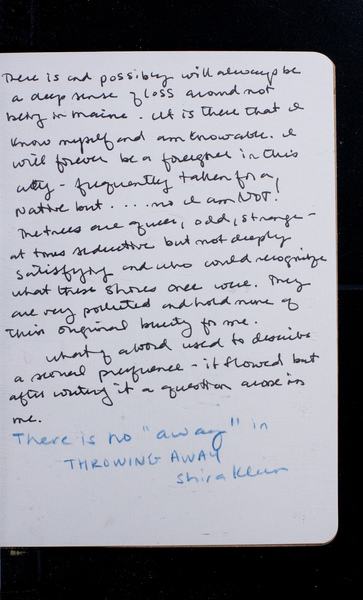 There is and possibly will always be
a deep sense of loss around not
being in Maine. It is there that I
know myself and am knowable. I
will forever be a foreigner in this
city - frequently taken for a
Native but .... no I am NOT!
The trees are queer, odd, strange -
at times seductive but not deeply
satisfying and who could recognize
what these shores once were. They
are very polluted and hold none of
their original beauty for me.
What of a word used to describe
a sexual preference - it flowed but
after writing it a question arose in
me.
There is no "away" in
THROWING AWAY
Shira